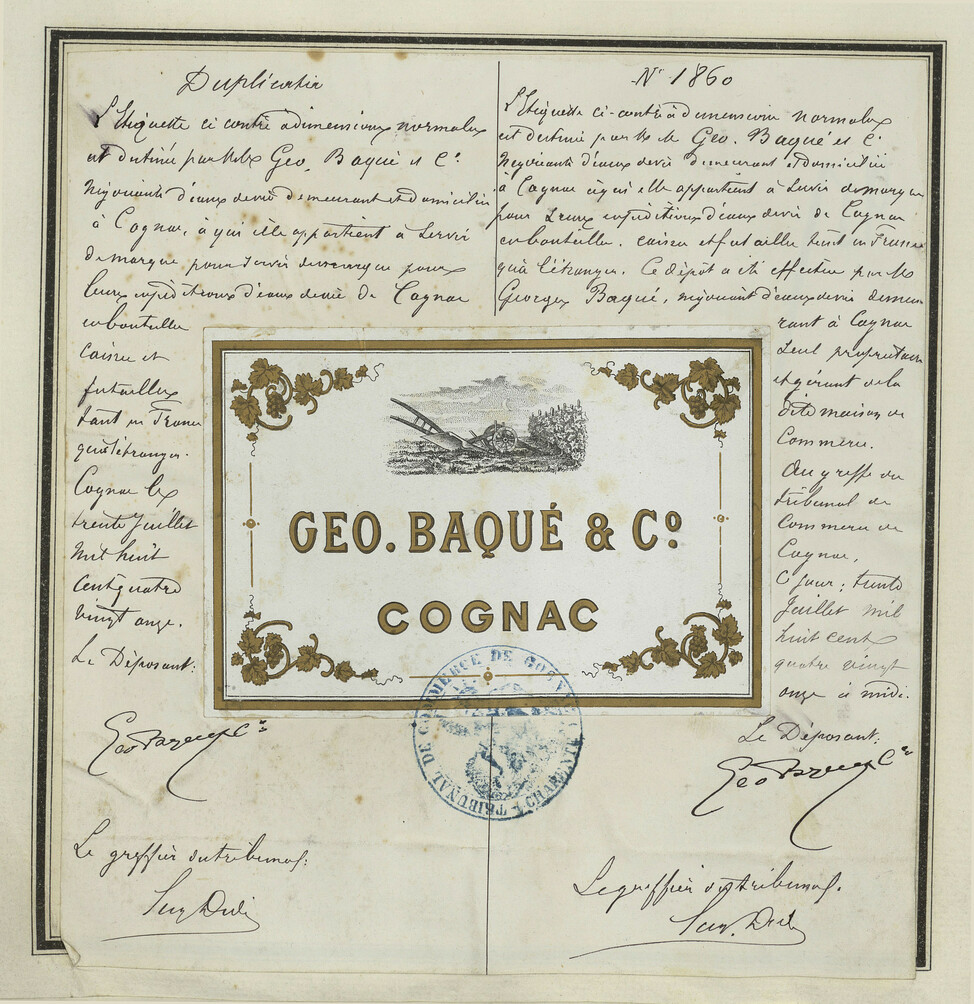 Duplicatia
L'Etiquette ci contre a dimensions normales
est destinée par MM Geo. Baqué et Cie
Négociants d'eaux de vie demeurant et domiciliés
à Cognac, à qui elle appartient à servir
de marque pour servir de marque pour
leurs expéditions d'eaux de vie de Cognac
en bouteilles
caisses et
futailles
tant en France
qu'à l'étranger.
Cognac le
trente Juillet
mil huit
cent quatre
vingt onze.
Le Déposant:
Geo Baqué & Cie
Le greffier du tribunal:
No 1860
L'Etiquette ci-contre à dimensions normales
est destinée par MM Geo. Baqué et Cie
Négociants d'eaux de vie demeurant et domiciliés
à Cognac à qui elle appartient à servir de marque
pour leurs expéditions d'eaux de vie de Cognac
en bouteilles, caisses et futailles tant en France
qu'à l'étranger. Ce dépôt a été effectué par Mr
Georges Baqué, négociant d'eaux de vie demeu
rant à Cognac
seul propriétaire
et gérant de la
dite maison de
Commerce.
Au greffe du
tribunal de
Commerce de
Cognac,
Ce jour, trente
Juillet mil
huit cent
quatre vingt
onze à midi.
Le Déposant:
Geo Baqué & Cie
Le greffier du tribunal.
GEO. BAQUÉ & Cº
COGNAC
TRIBUNAL DE COMMERCE DE COGNAC (CHARENTE)